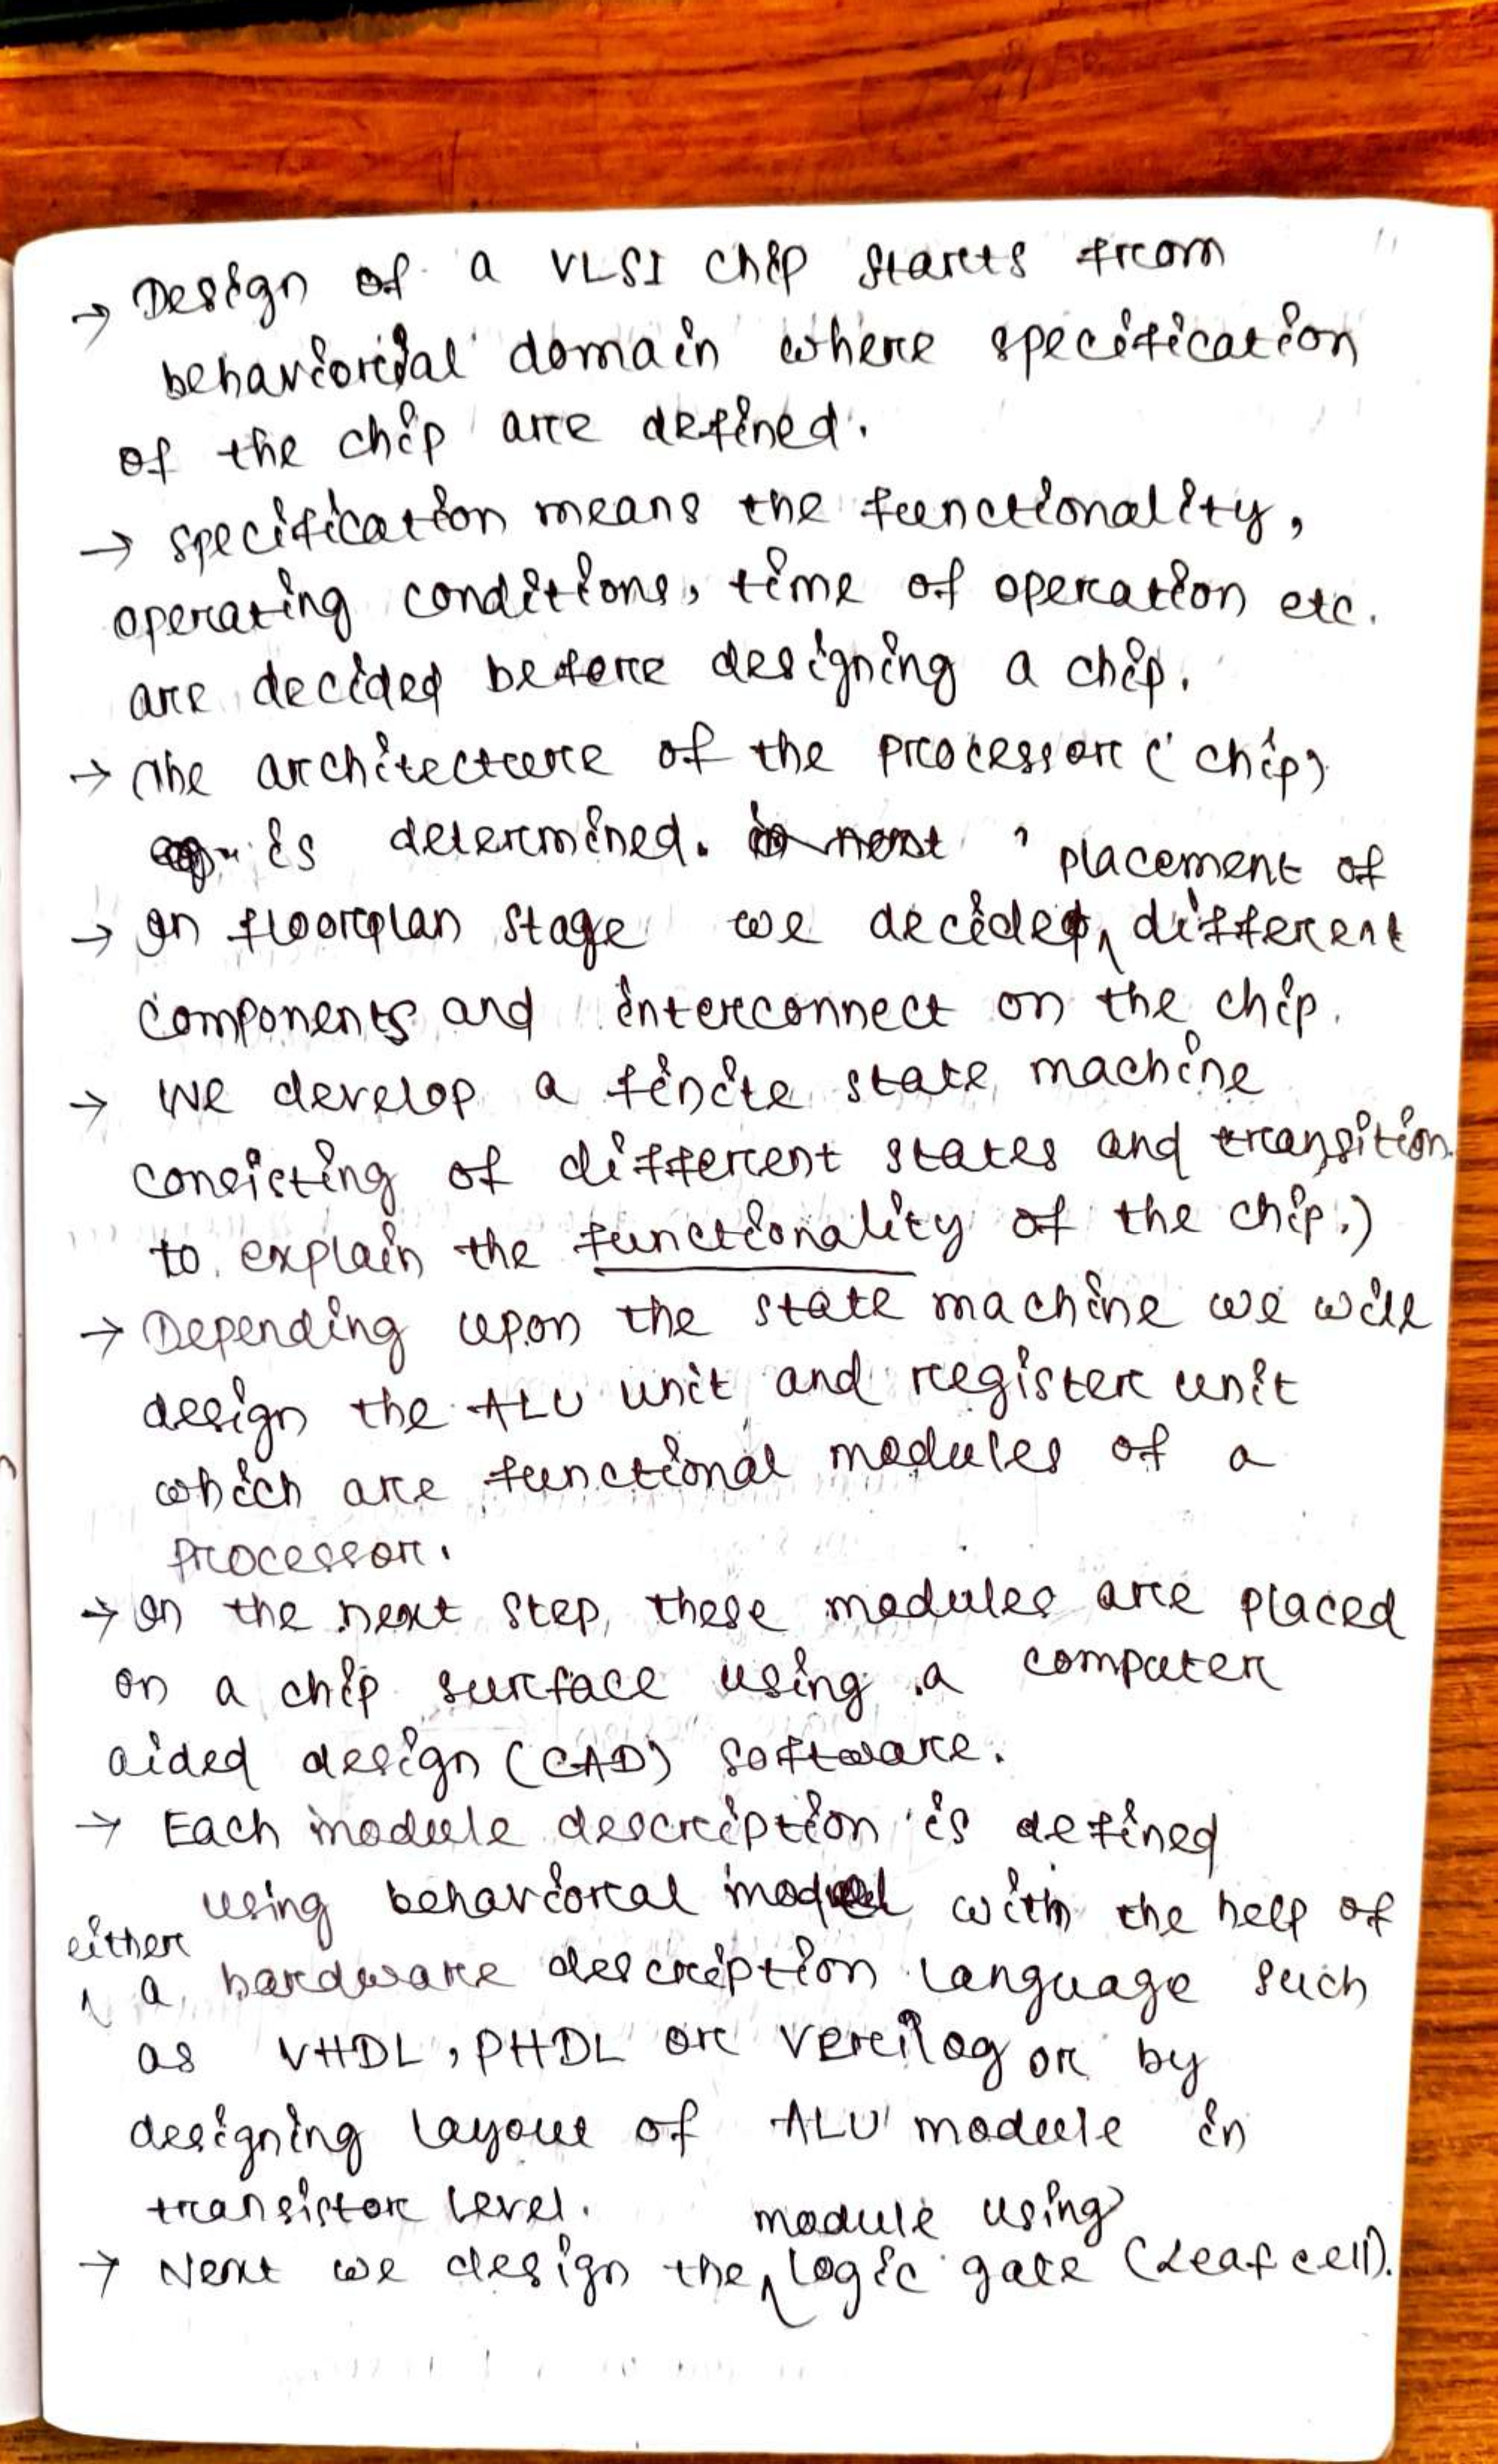 → Design of a VLSI chip starts from
behaviorial domain where specification
of the chip are defined.
→ specification means the functionality,
operating conditions, time of operation etc.
are decided before designing a chip.
→ The architecture of the processor (chip)
is determined. in next
→ In floorplan stage we decided placement of different
components and interconnect on the chip.
→ We develop a finite state machine
consisting of different states and transition
to explain the functionality of the chip.)
→ Depending upon the state machine we will
design the ALU unit and register unit
which are functional modules of a
processor.
→ In the next step, these modules are placed
on a chip surface using a computer
aided design (CAD) software.
→ Each module description is defined
using behavioral model with the help of
either a hardware description language such
as VHDL, PHDL or verilog or by
designing layout of ALU module in
transistor level.
→ Next we design the module using logic gate (Leaf cell).